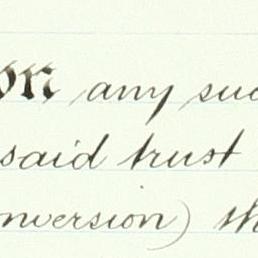 on any suc
said trust
nversion) th